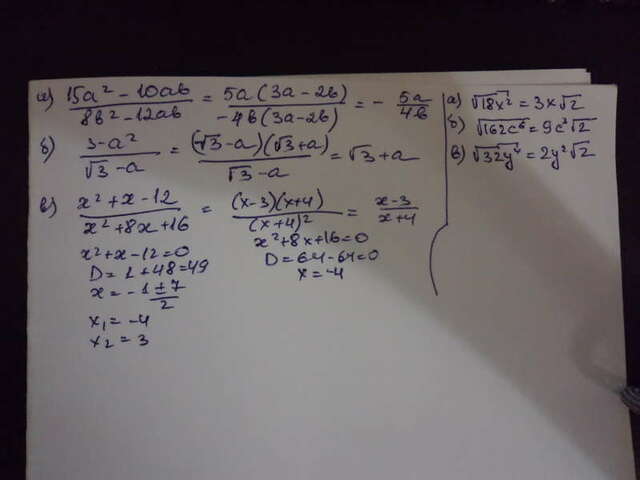 а) (15a² - 10ab)/(8b² - 12ab) = 5a(3a - 2b)/(-4b(3a - 2b)) = - 5a/4b
б) (3 - a²)/(√3 - a) = (√3 - a)(√3 + a)/(√3 - a) = √3 + a
в) (x² + x - 12)/(x² + 8x + 16) = (x - 3)(x + 4)/(x + 4)² = (x - 3)/(x + 4)
x² + x - 12 = 0
D = 1 + 48 = 49
x = - 1 ± 7/2
x₁ = -4
x₂ = 3
x² + 8x + 16 = 0
D = 64 - 64 = 0
x = -4
а) √18x² = 3x√2
б) √162c⁶ = 9c³√2
в) √32y⁴ = 2y²√2